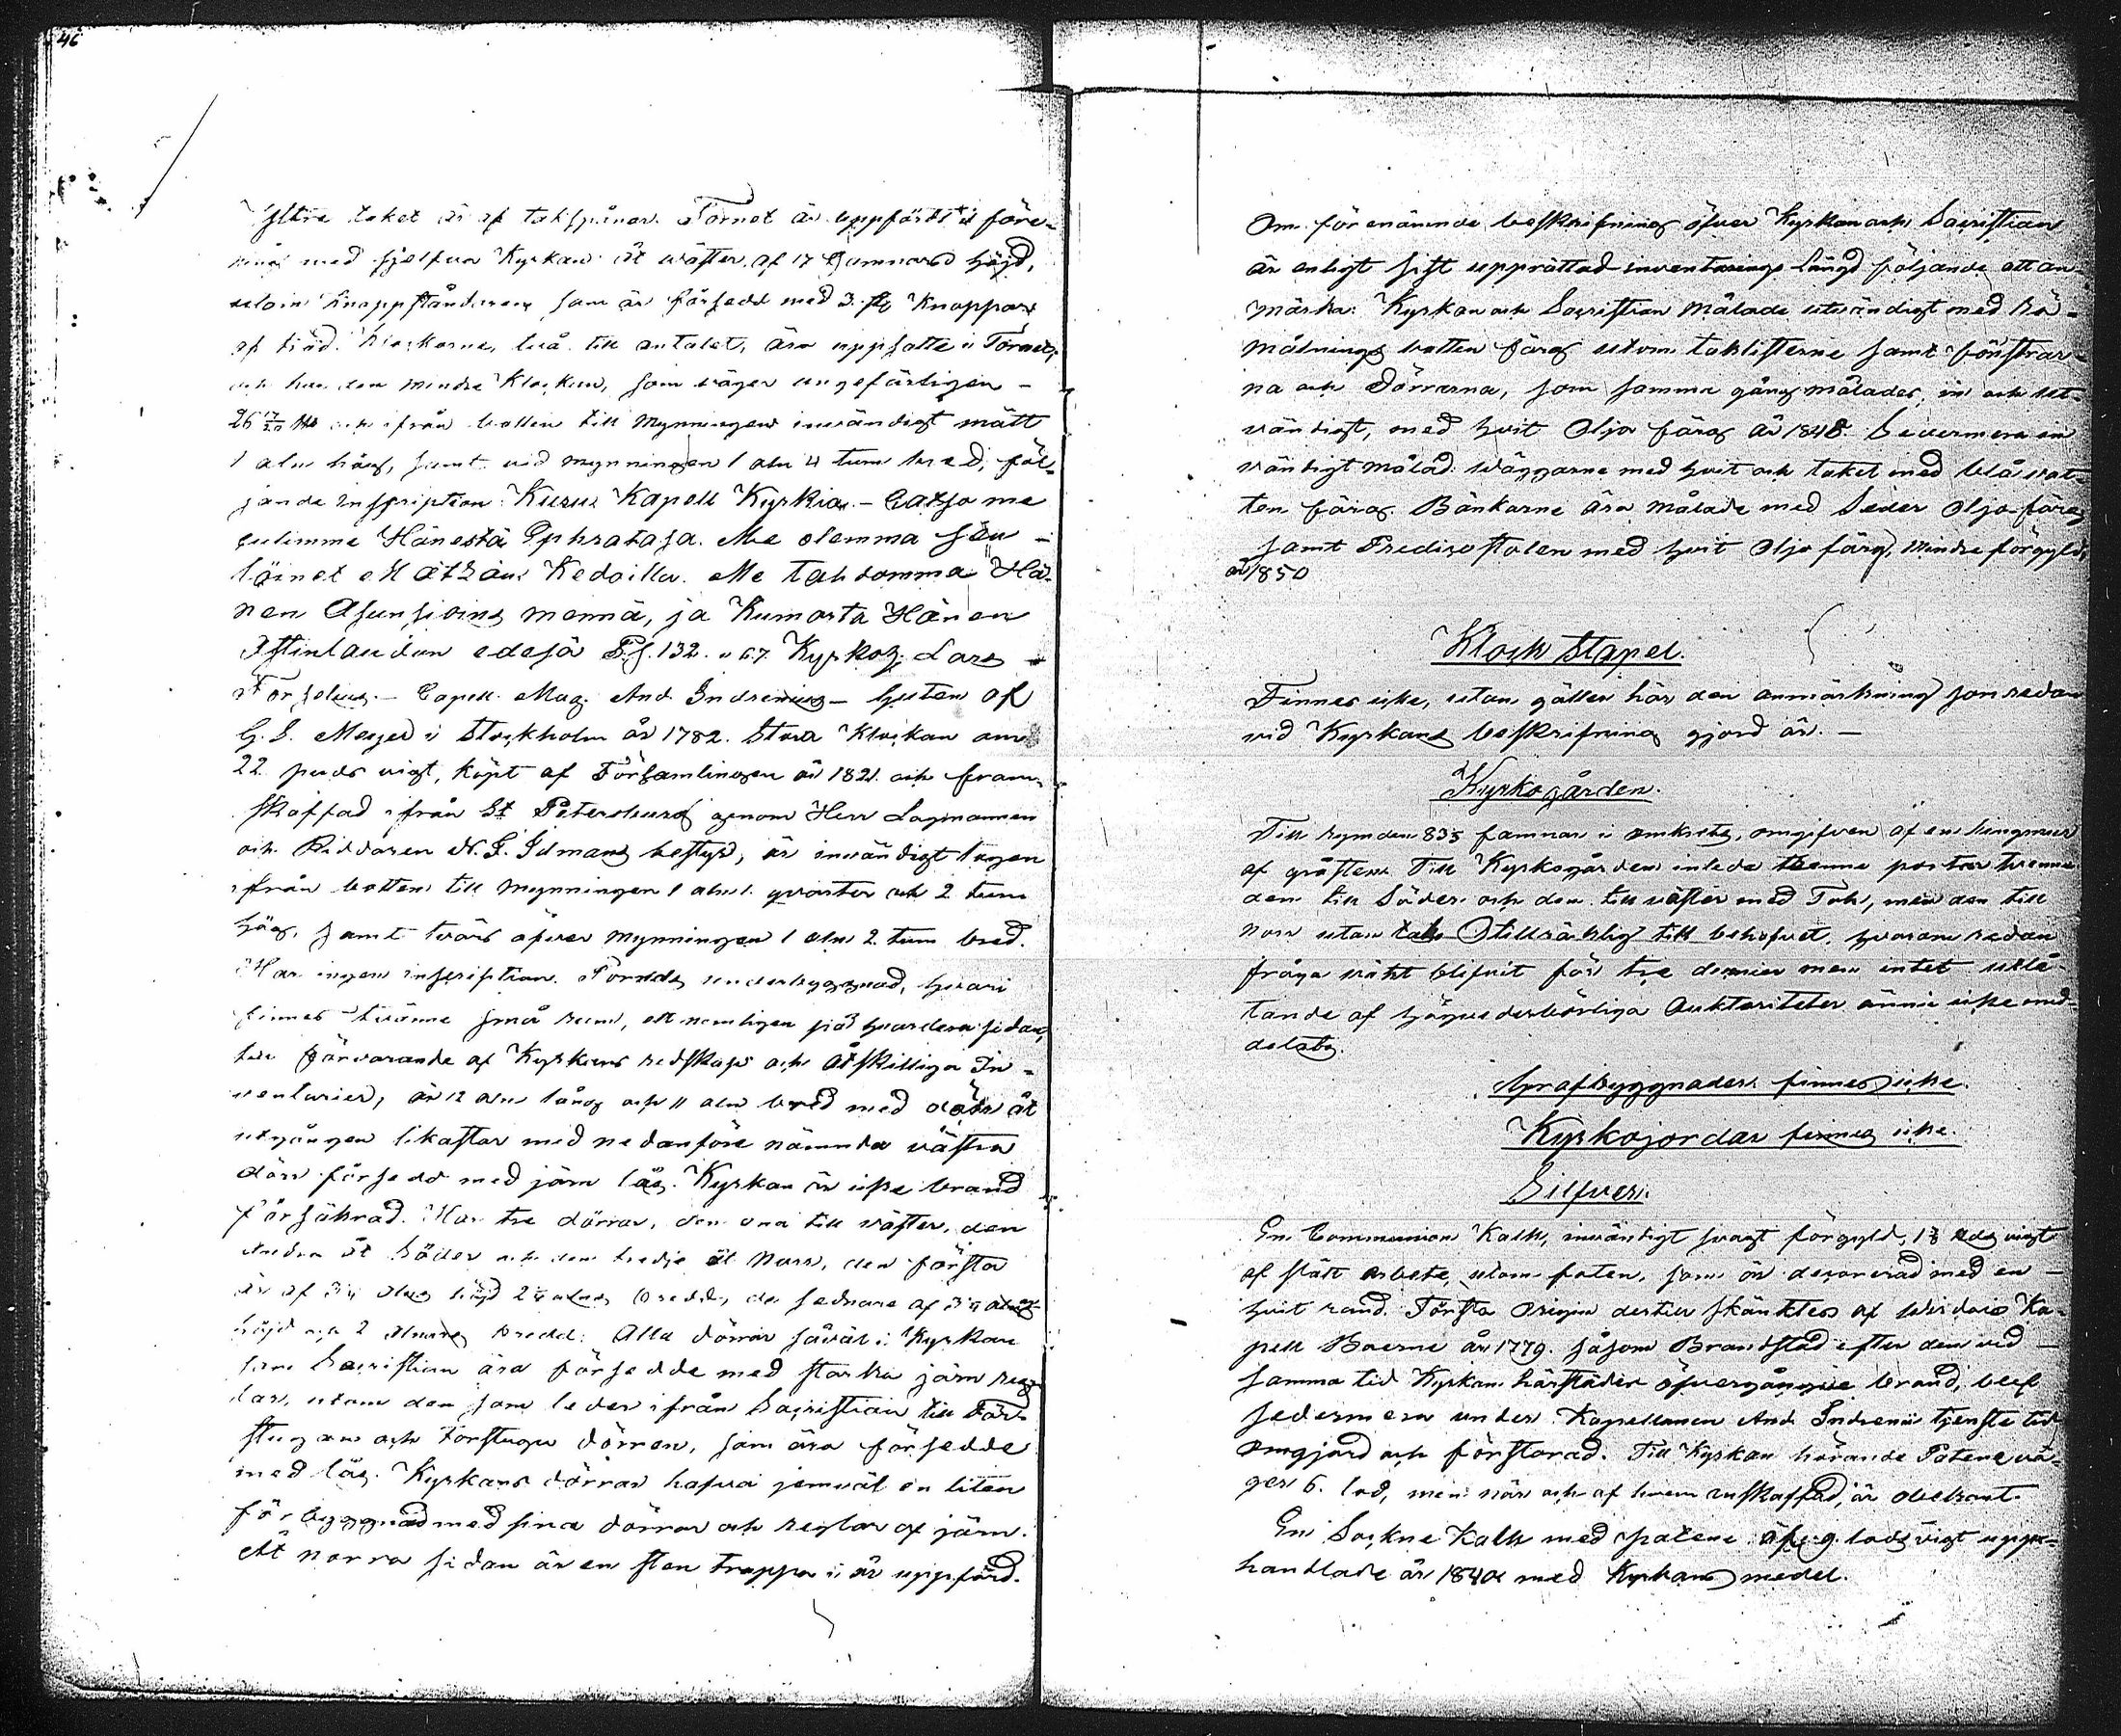 46
Yttre taket är af takspånor. Tornet är uppfördt i före-
ning med sjelfva Kyrkan åt wäster af 17 famnars höjd,
utom Knappståndaren som är försedd med 3. st. Knappar
af träd. Klockorna, två till antalet, äro uppsatte i Tornet,
och har den mindre Klockan, som wäger ungefärligen -
26 17/20 och ifrån botten till Mynningen invändigt mätt
1 aln hög, samt vid mynningen 1 aln 4 tum bred, föl-
jande Inscription: Kuru Kapell Kyrkia. - Catso me
culimme Hänestä Ephratasa. Me olemma sen -
löinet Metzäin Kedoilla. Me tahdomma Hä-
nen Asunsioins mennä, ja Kumarta Hänen
Istinlaudan edesä Ps. 132. v 6.7. Kyrkoh. Lars -
Forselius. - Capell. Mag. And. Indrenius - Guten af
G. S. Meyer i Stockholm år 1782. Stora Klockan om
22 puds vigt, köpt af Församlingen år 1821. och fram-
skaffad ifrån St Petersburg genom Herr Lagmannen
och Riddaren N. G. Idmans bestyr, är invändigt tagen
ifrån botten till Mynningen 1 aln 1. qvarter och 2 tum
hög, samt tvärs öfver mynningen 1 aln 2. tum bred.
Har ingen inscription. Tornets underbyggnad, hvari
finnes tvänne små rum, ett nemligen på hvardera sidan,
till förvarande af Kyrkans redskap och åtskilliga In-
ventarier, är 12 aln lång och 11 aln bred med dörr åt
utgången likasom med nedanföre nämnda västra
dörr försedd med järn lås. Kyrkan är icke brand
försäkrad. Har tre dörrar, den ena till väster, den
andra åt Söder och den tredje åt Norr, den första
är af 3 1/4 alns höjd 2 1/4 alns bredd, de sednare af 3 1/4 alns
höjd och 2 alnars bredd: Alla dörrar såväl i Kyrkan
som Sacristian äro försedde med starka järn reg-
lar, utom den som leder ifrån Sacristian till För-
stugan och Förstugu dörren, som äro försedde
med lås. Kyrkans dörrar hafva jemväl en liten
förbyggnad med sina dörrar och reglar af järn.
Åt norra sidan är en sten trappa i år uppförd.
Om förenämnde beskrifning öfver Kyrkan och Sacristian
är enligt sist upprättad inventarings längd följande att an-
märka: Kyrkan och Sacristian målade utvändigt med Rö-
målnings vatten färg utom taklisterne samt fönstrar-
na och Dörrarna, som samma gång målades, in och ut-
vändigt, med hvit Olje färg år 1848. Sedermera in
vändigt målad: Väggarne med hvit och taket med blå vat-
ten färg. Bänkarne äro målade med Seder Olje färg
samt Predikostolen med hvit Olje färg, mindre förgyld,
år 1850
Klock Stapel.
Finnes icke, utan gäller här den anmärkning som redan
vid Kyrkans beskrifning gjord är. -
Kyrko gården.
Till rymden 83 1/3 famnar i omkrets, omgifven af en ringmur
af gråsten. Till Kyrkogården inleda trenne portar
den till Söder och den till väster med Tak, men den till
Norr utan tak. Otillräcklig till behofvet, hvarom redan
fråga väkt blifvit för tre år men intet utlå-
tande af höga vederbörliga Auktoriteter ännu icke med-
delats.
Grafbyggnader finnes icke.
Kyrkojordar finnes icke.
Silfver.
En Communion Kalk, invändigt svagt förgyld, vigt
af slätt arbete, utom foten, som är decorerad med en
hvit rand. Första Origin dertill skänktes af Wirdois Ka-
pell Boerne år 1779. såsom Brandstod efter den vid
samma tid Kyrkan härstädes öfvergångne brand, blef
sedermera under Kapellanen And. Indrenii tjenste tid
omgjord och förstorad. Till Kyrkan hörande Patene vä-
ger 6. lod, men när och af hvem anskaffad, är obekant.
En Sockne Kalk med patene af 9. lods vigt uppe-
handlade år 1840 med Kyrkans medel.